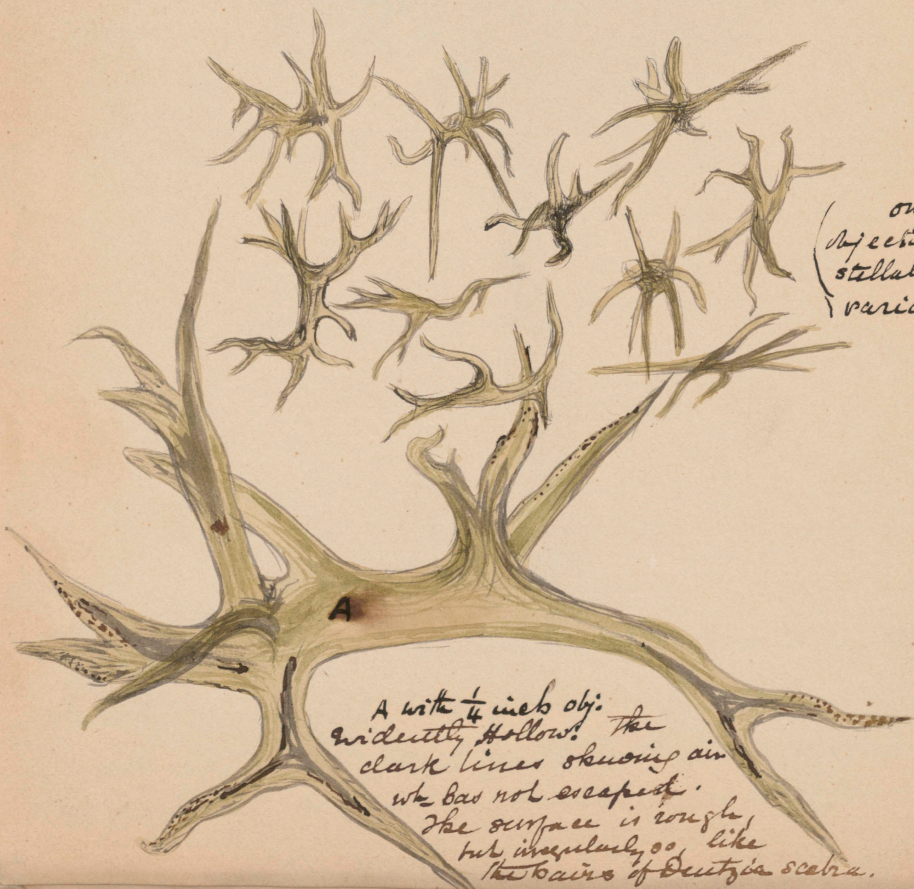 on
objecti
stellat
varia
A
A with 1/4 inch obj.
Evidently Hollow! The
dark lines showing air
wh has not escaped.
The surface is rough,
but irregularly so, like
the hairs of Deutzia scabra.